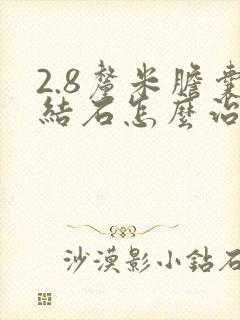 2.8釐米膽囊
結石怎麼治
沙漠影小鉆石